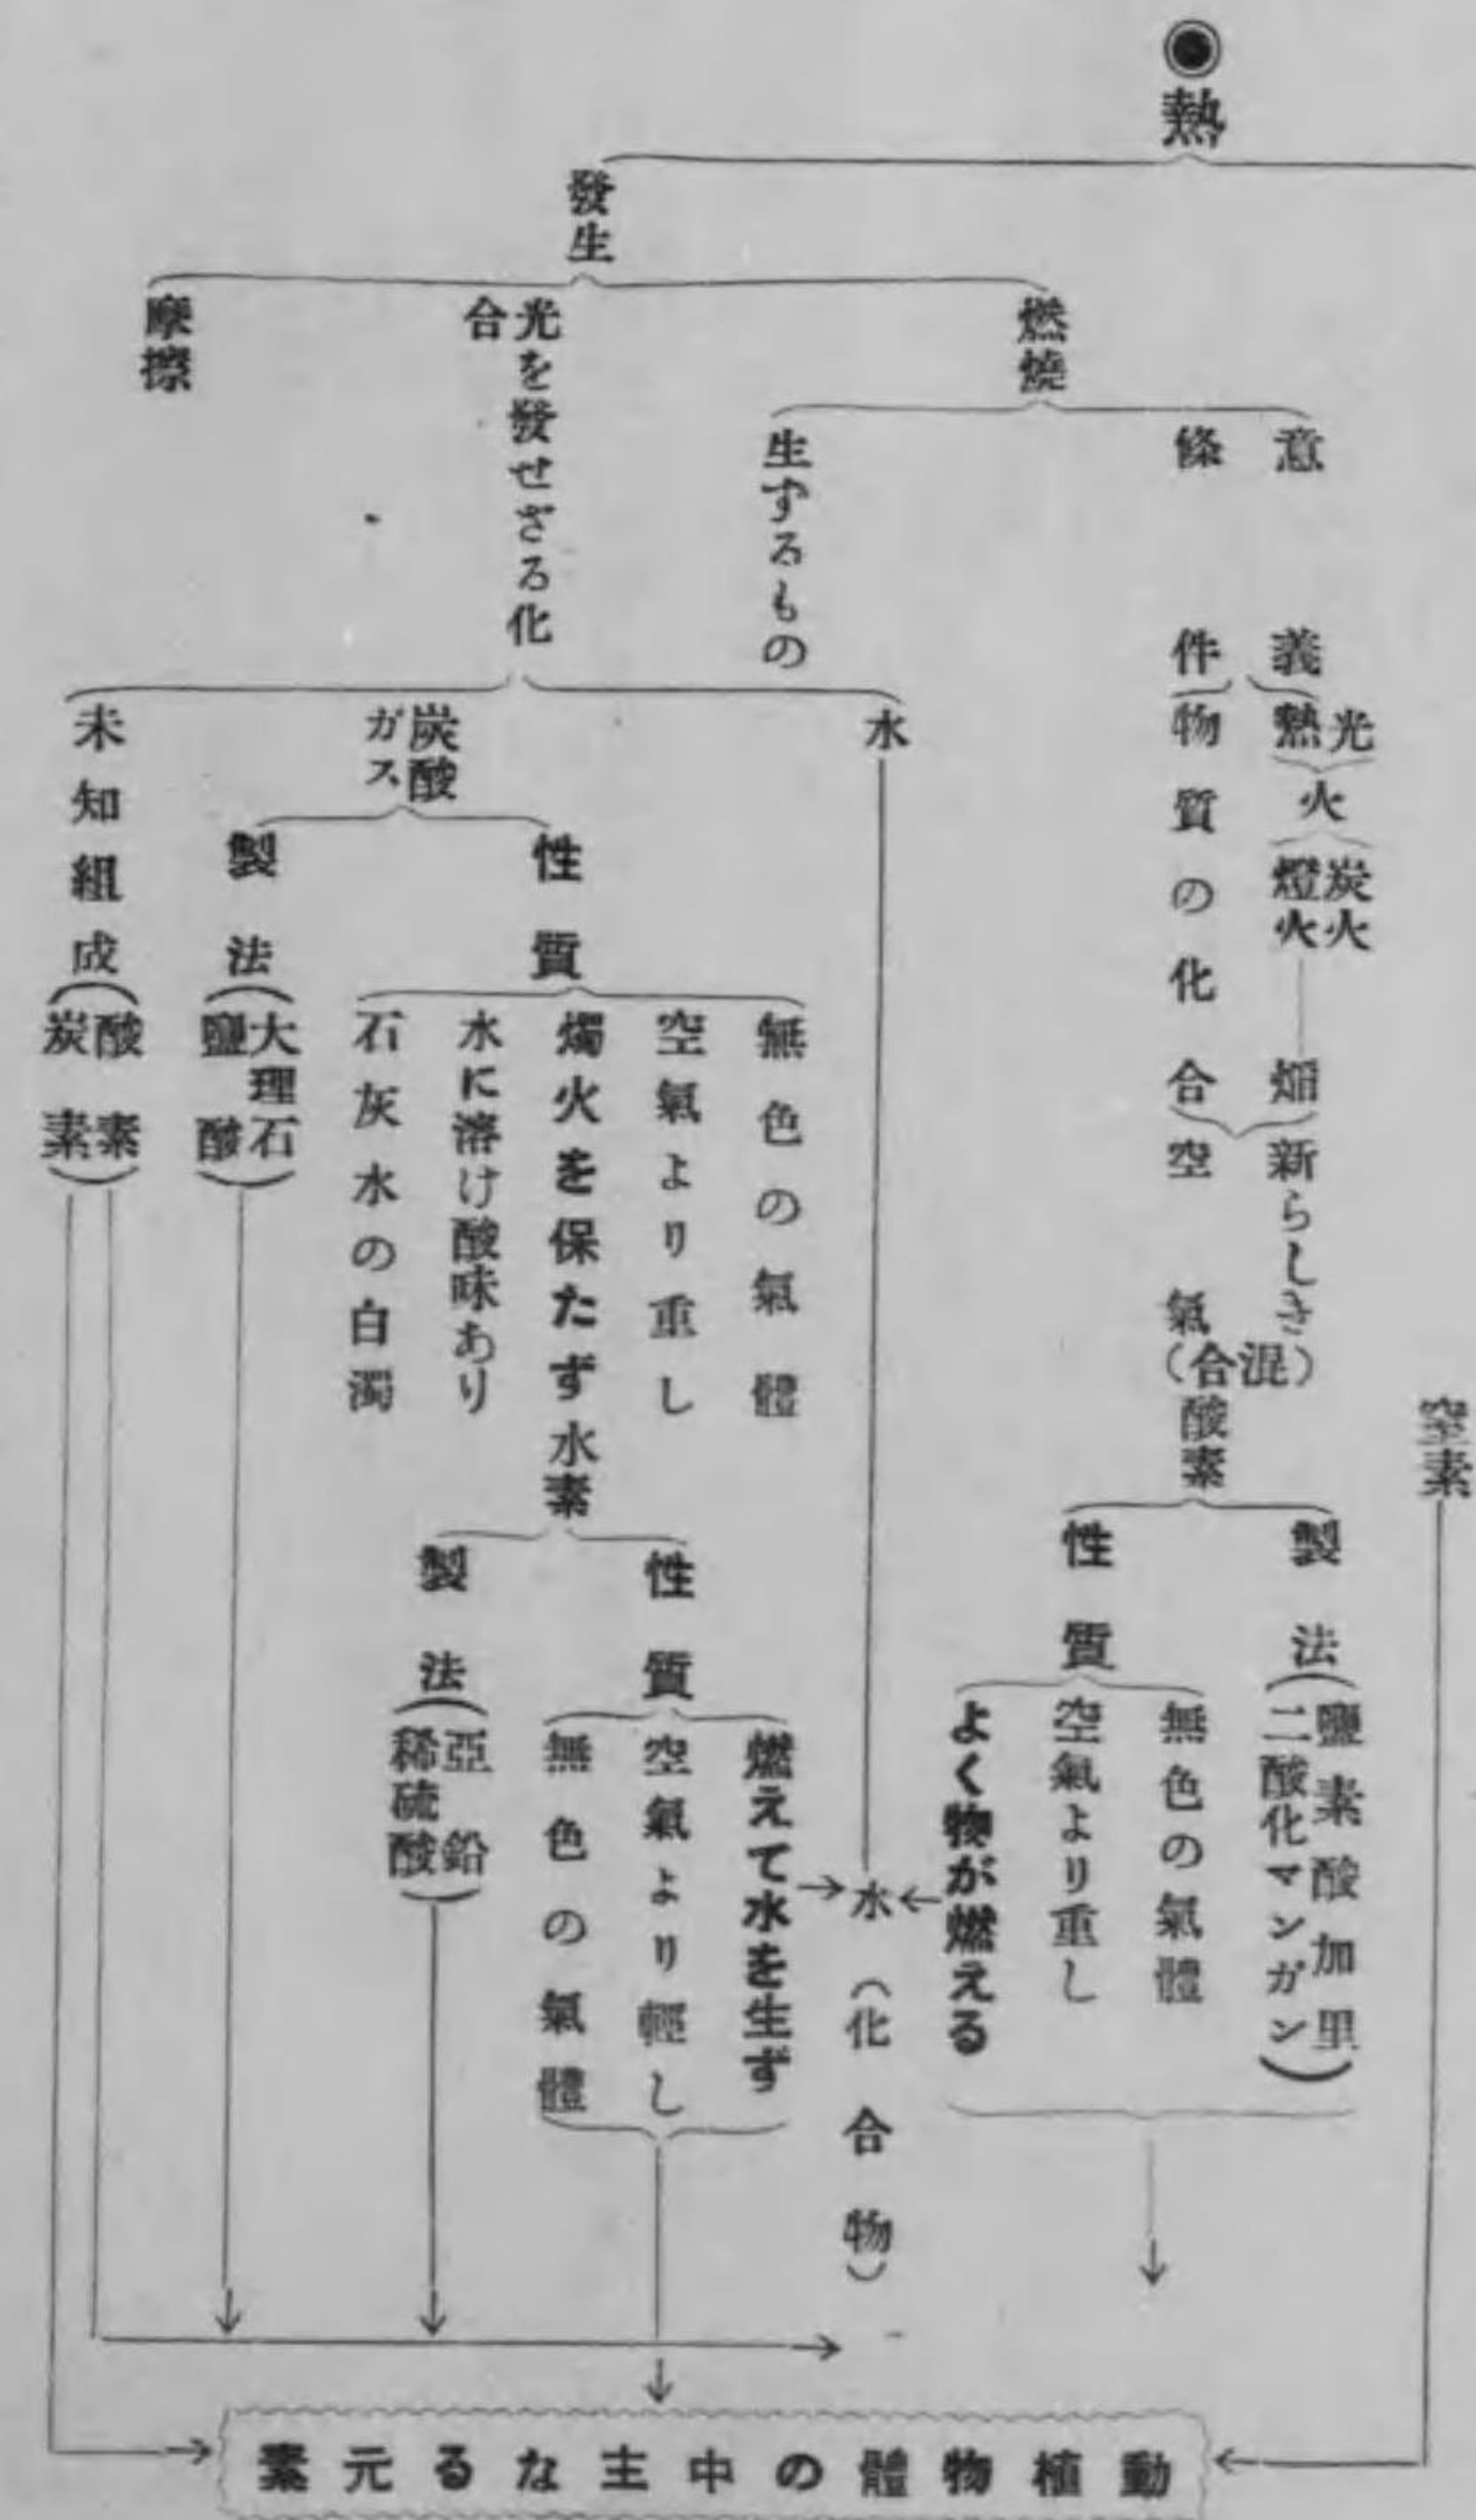 ◉熱
發生
燃燒
意義
光
熱
火
炭火
燈火
焔
條件
物質の化合
新らしき
空氣
(混合)
酸素
製法
鹽素酸加里
二酸化マンガン
性質
無色の氣體
空氣より重し
よく物が燃える
窒素
生ずるもの
水
水(化合物)
炭酸ガス
性質
無色の氣體
空氣より重し
燭火を保たず
水に溶け酸味あり
石灰水の白濁
製法
大理石
鹽酸
水素
性質
燃えて水を生ず
空氣より輕し
無色の氣體
製法
亞鉛
稀硫酸
未知組成
酸素
炭素
光を發せざる化合
摩擦
動植物體の中主なる元素